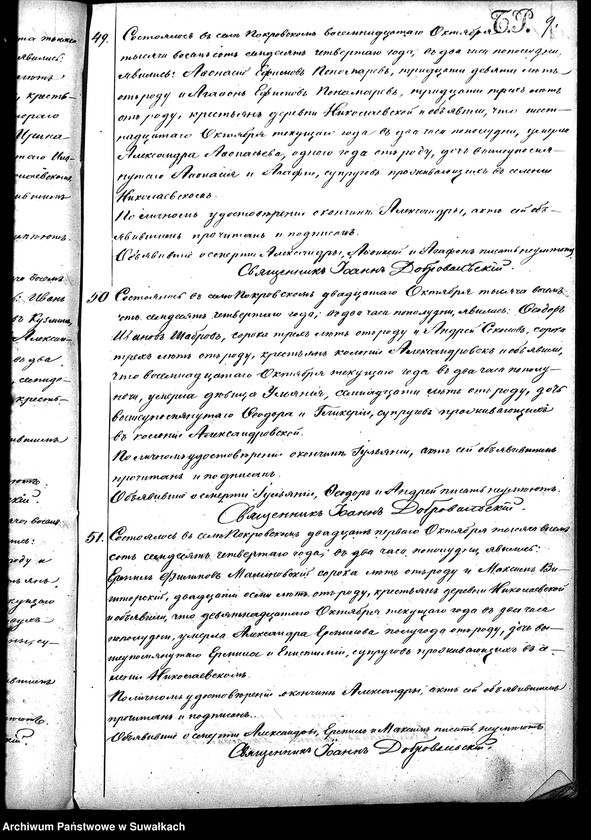 Б.Р. 9.
49. Состоялось въ селѣ Покровскомъ восемнадцатаго Октября
тысяча восемьсотъ семдесятъ четвертаго года; въ два часа пополудни,
явились: Афонасій Ефимовъ Пономаревъ, тридцати девяти лѣтъ
отъ роду и Агафонъ Ефимовъ Пономаревъ, тридцати трехъ лѣтъ
отъ роду, крестьяне деревни Николаевской и объявили, что шест-
надцатаго Октября текущаго года въ два часа пополудни, умерла
Александра Афонасьева, одного года отъ роду, дочь вышеупомя-
нутаго Афонасія и Агафіи, супруговъ проживающихъ въ селеніи
Николаевскомъ.
По личномъ удостовѣреніи о кончинѣ Александры, актъ сей объ-
явившимъ прочитанъ и подписанъ.
Объявившіе о смерти Александры, Афонасій и Агафонъ писать неумѣютъ
Священникъ Іоаннъ Добровольскій.
50 Состоялось въ селѣ Покровскомъ двадцатаго Октября тысяча восемь-
сотъ семдесятъ четвертаго года; въ два часа пополудни, явились: Ѳеодоръ
Ивановъ сорока трехъ лѣтъ отъ роду и Андрей сорока
трехъ лѣтъ отъ роду, крестьяне колоніи Александровска и объявили,
что восемнадцатаго Октября текущаго года въ два часа полу-
ночи, умерла дѣвица Ульянія, семнадцати лѣтъ отъ роду, дочь
вышеупомянутаго Ѳеодора и Гликеріи, супруговъ проживающихъ
въ колоніи Александровской.
По личномъ удостовѣреніи о кончинѣ Іульяніи, актъ сей объявившимъ
прочитанъ и подписанъ.
Объявившіе о смерти Іульяніи, Ѳеодоръ и Андрей писать неумѣютъ.
Священникъ Іоаннъ Добровольскій.
51. Состоялось въ селѣ Покровскомъ двадцать перваго Октября тысяча восемь-
сотъ семдесятъ четвертаго года; въ два часа пополудни, явились:
Ермилъ Филиповъ сорока лѣтъ отъ роду и Максимъ
двадцати осми лѣтъ отъ роду, крестьяне деревни Николаевской
и объявили, что девятнадцатаго Октября текущаго года въ два часа
пополудни, умерла Александра Ермилова полугода отъ роду, дочь вы-
шеупомянутаго Ермила и супруговъ проживающихъ въ
Николаевскомъ.
По личномъ удостовѣреніи о кончинѣ Александры, актъ сей объявившимъ
прочитанъ и подписанъ.
Объявившіе о смерти Александры, Ермилъ и Максимъ писать неумѣютъ
Священникъ Іоаннъ Добровольскій.
Archiwum Państwowe w Suwałkach